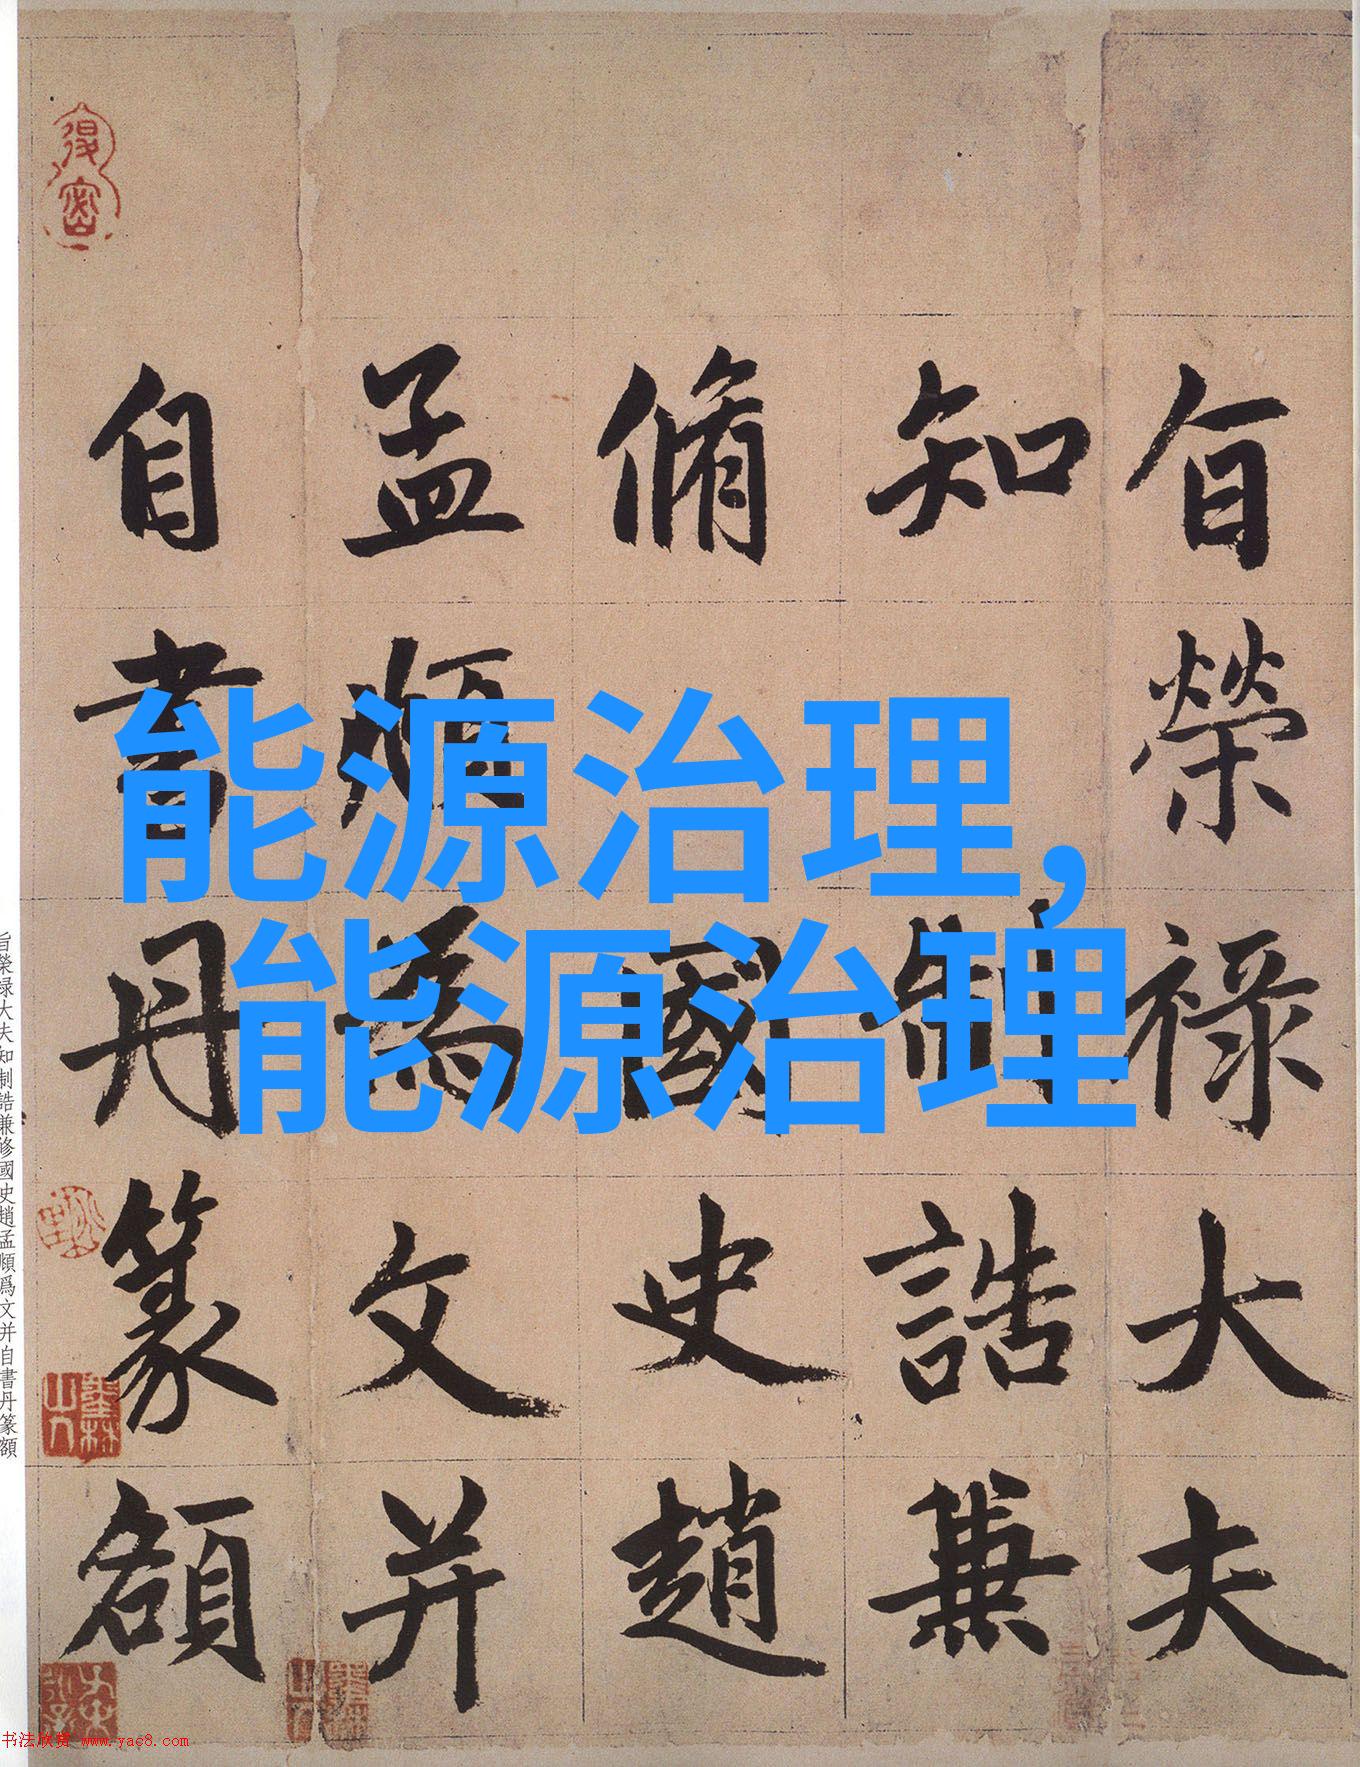 旨榮禄大夫
知制誥兼
脩國史趙
孟頫為文并
自書丹篆額
能源治理，
能源治理
旨榮禄大夫知制誥兼修國史趙孟頫爲文并自書丹篆額
书法欣赏 www.yac8.com